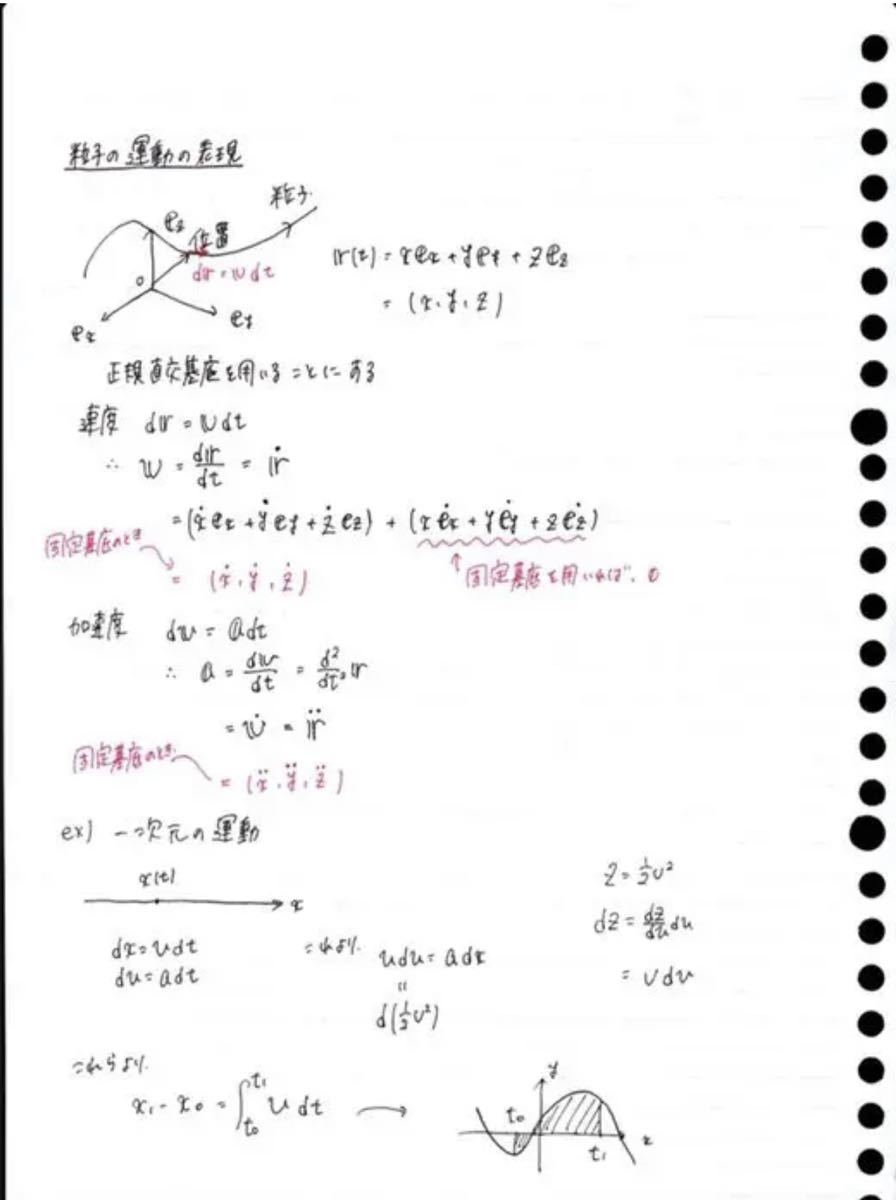 粒子の運動の表現
粒子
e_z
位置
dr = v dt
o
e_x
e_y
r(t) = x e_x + y e_y + z e_z
= (x, y, z)
正規直交基底を用いることにする
速度 dr = v dt
∴ v = dr/dt = ṙ
= (ẋ e_x + ẏ e_y + ż e_z) + (x ė_x + y ė_y + z ė_z)
固定基底のとき
= (ẋ, ẏ, ż)
↑ 固定基底を用いれば, 0
加速度 dv = a dt
∴ a = dv/dt = d²/dt² r
= v̇ = r̈
固定基底のとき
= (ẍ, ÿ, z̈)
ex) 一次元の運動
x(t)
x
dx = v dt
dv = a dt
これより,
v dv = a dx
"
d(½v²)
z = ½v²
dz = dz/dv dv
= v dv
これらより,
x₁ - x₀ = ∫_{t₀}^{t₁} v dt →
y
t₀
t₁
x